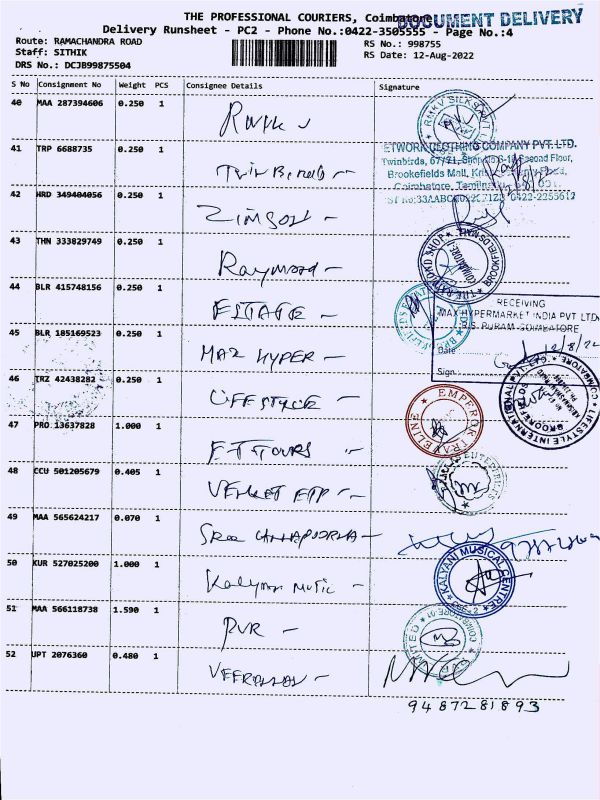 THE PROFESSIONAL COURIERS, Coimbatore
DOCUMENT DELIVERY
Delivery Runsheet - PC2 - Phone No.:0422-3505555 - Page No.:4
Route: RAMACHANDRA ROAD
RS No.: 998755
Staff: SITHIK
RS Date: 12-Aug-2022
DRS No.: DCJB99875504
S No Consignment No Weight PCS Consignee Details Signature
40 MAA 287394606 0.250 1
RMKV SILKS
41 TRP 6688735 0.250 1 Twin Birds
NETWORK CLOTHING COMPANY PVT. LTD.
Twinbirds, 67/71, Second Floor,
Brookefields Mall,
Coimbatore,
0422-2255612
42 HRD 349404056 0.250 1 Zimson
43 THN 333829749 0.250 1 Raymond
THE RAYMOND SHOP BROOKEFIELDS MALL COIMBATORE
44 BLR 415748156 0.250 1 ESTATE
RECEIVING
MAX HYPERMARKET INDIA PVT LTD
R.S. PURAM COIMBATORE
45 BLR 185169523 0.250 1 MAX HYPER
Date 12/8/22
Sign
46 TRZ 42438282 0.250 1 LIFESTYLE
LIFESTYLE INTERNATIONAL BROOKEFIELDS COIMBATORE
47 PRO 13637828 1.000 1 ET TOURS
EMPEROR TRAVELINE
48 CCU 501205679 0.405 1
49 MAA 565624217 0.070 1 SREE ANNAPOORNA
50 KUR 527025200 1.000 1 Kalyani Music
KALYANI MUSICAL CENTRE
51 MAA 566118738 1.590 1 PVR
52 UPT 2076360 0.480 1
9487281893